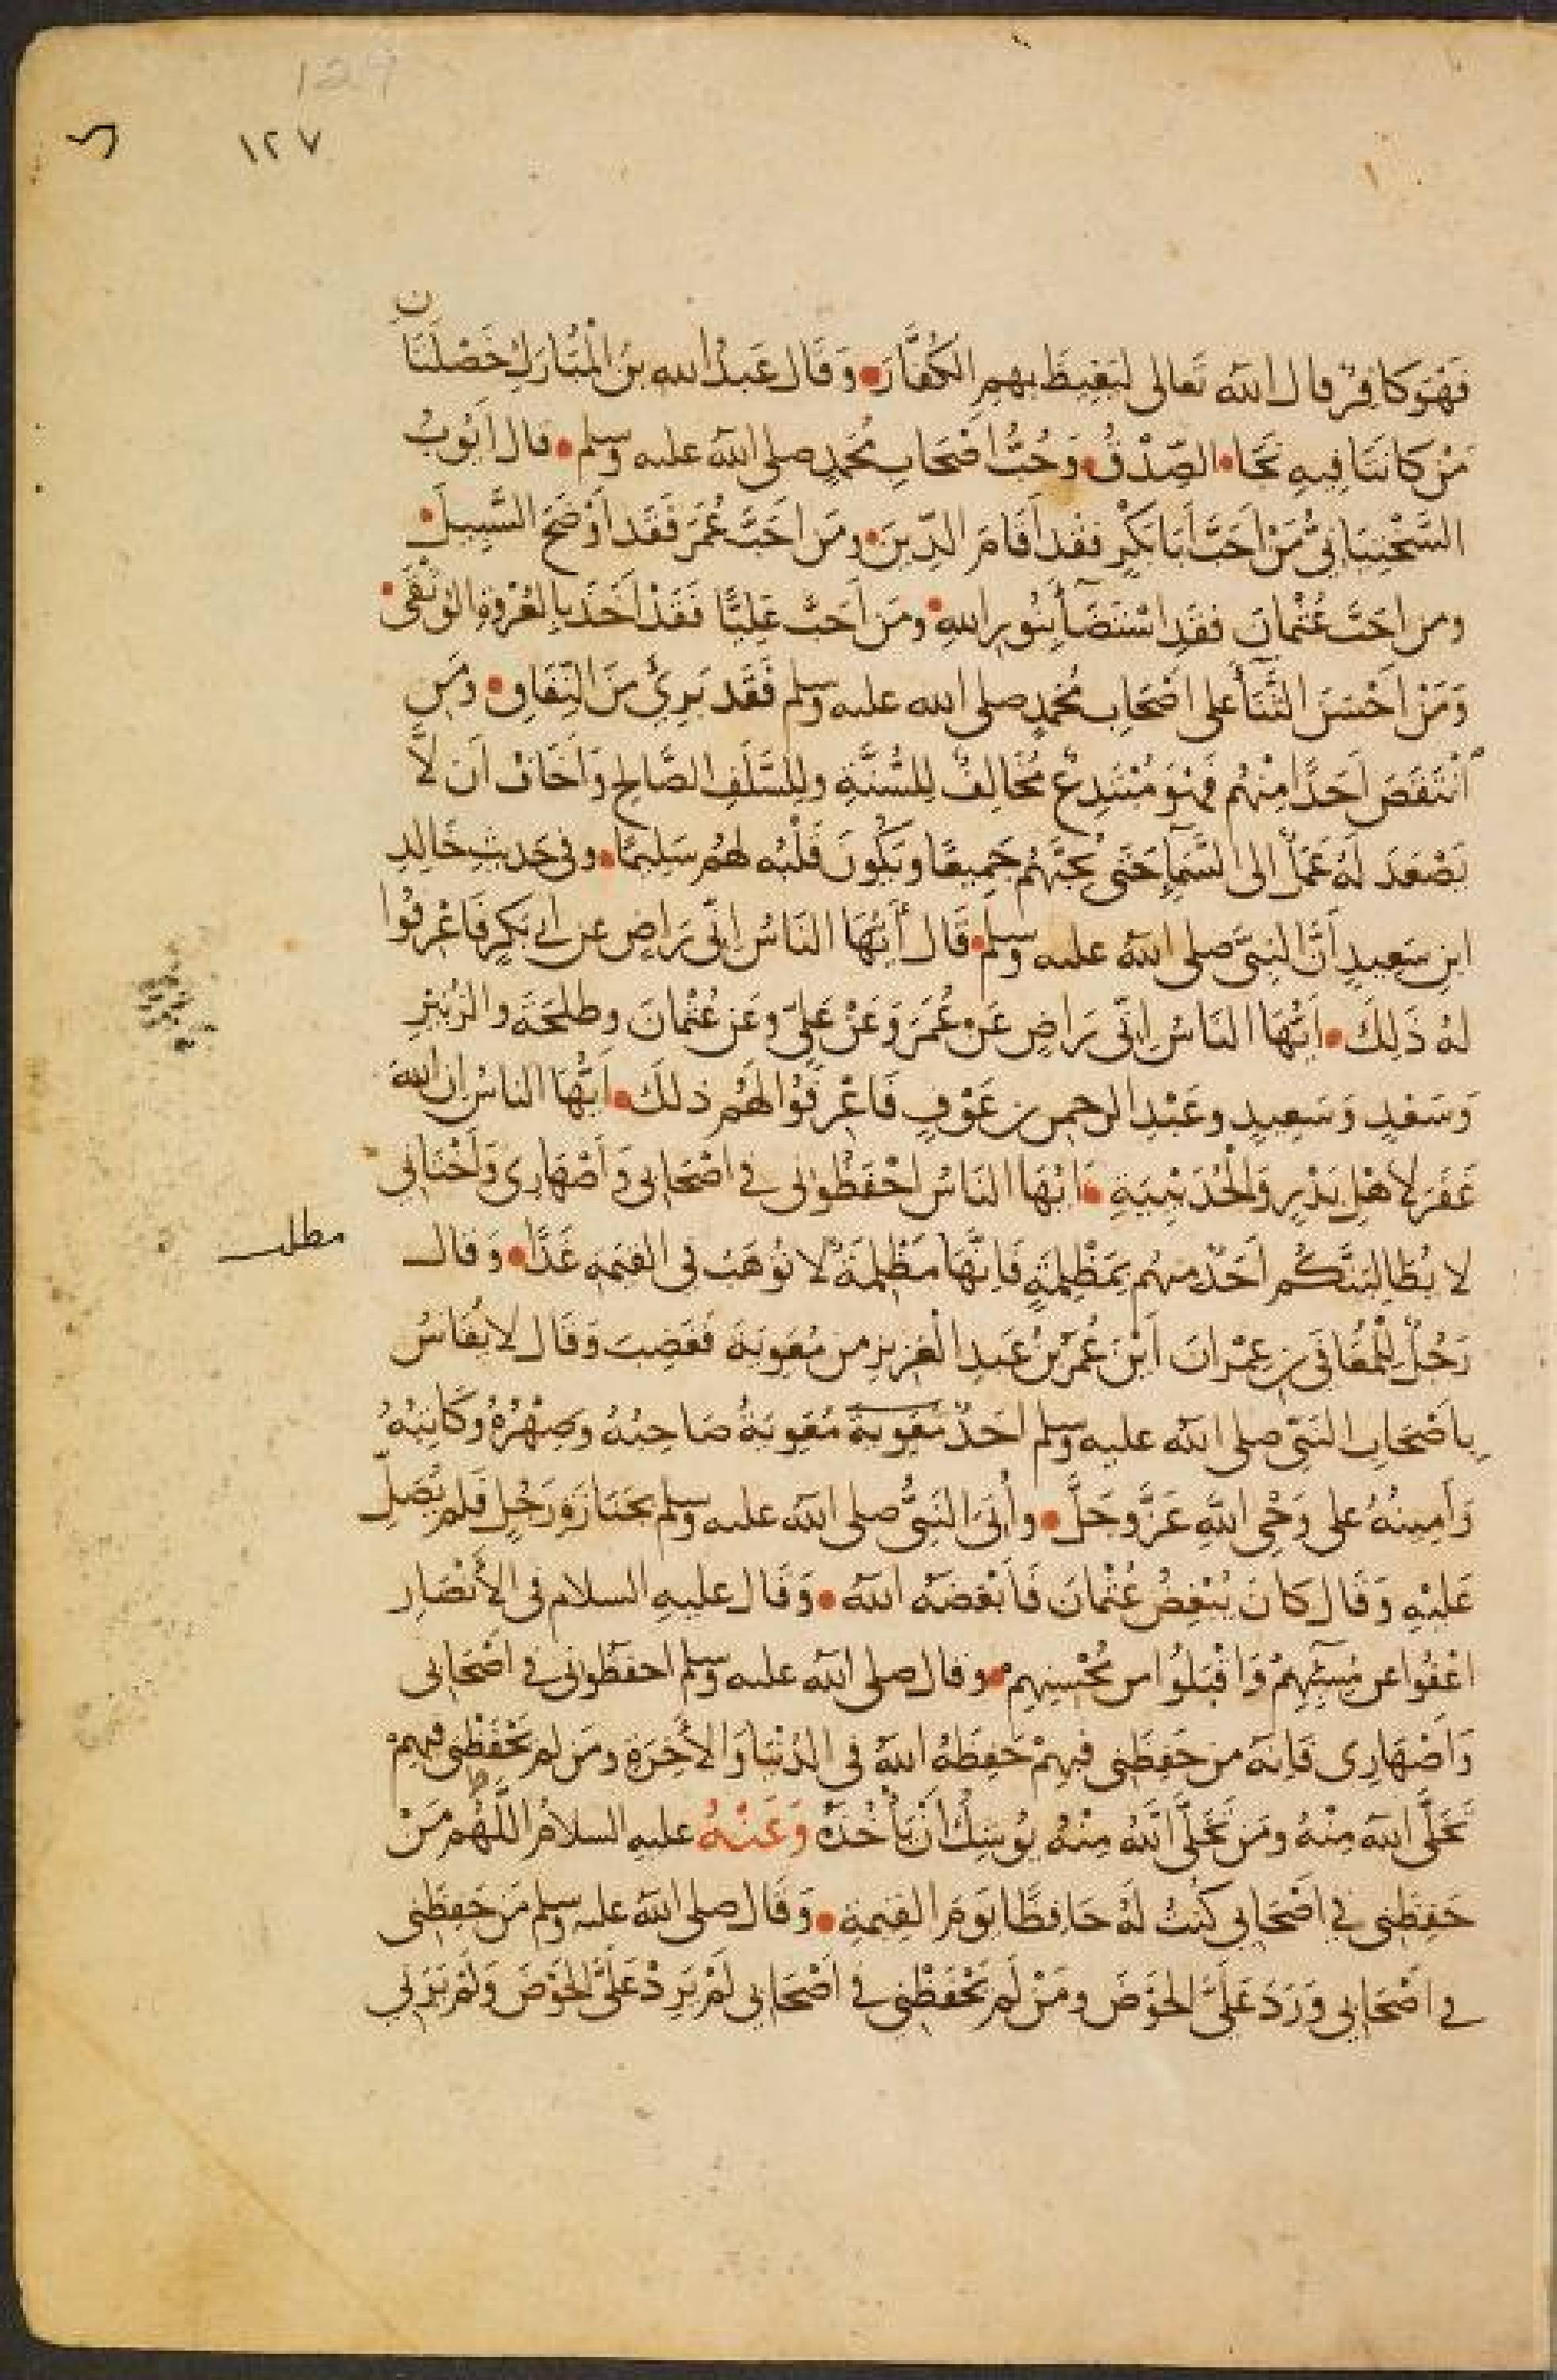 129
١٢٧
فَهُوَ كَافِرٌ قال اللهُ تَعالى لِيَغِيظَ بِهِمِ الكُفَّارَ وَقَال عَبدُ الله بنُ الْمُبَارَكِ خَصْلَتَانِ
مَنْ كَانَتَا فِيهِ نَجَا الصِّدْقُ وَحُبُّ اَصْحَابِ مُحَمَّدٍ صلى اللهُ عليه وسلم قال اَيُّوبُ
السَّخْتِيَانِيُّ مَنْ اَحَبَّ اَبَا بَكْرٍ فقد اَقَامَ الدِّينَ ومَن اَحَبَّ عُمَرَ فَقَد اَوْضَحَ السَّبِيلَ
ومن احَبَّ عُثْمانَ فقَدِ اسْتَضَآءَ بِنُورِ اللهِ ومَن اَحَبَّ عَلِيًّا فَقَدْ اَخَذَ بِالعُرْوَةِ الوُثْقَى
وَمَنْ اَحْسَنَ الثَّنَآءَ على اَصْحَابِ مُحَمَّدٍ صلى الله عليه وسلم فَقَد بَرِئَ مِنَ النِّفَاقِ ومَنِ
انْتَقَصَ اَحَدًا مِنْهُم فَهُوَ مُبْتَدِعٌ مُخَالِفٌ لِلسُّنَّةِ ولِلسَّلَفِ الصَّالِحِ وَاَخَافُ اَن لاَ
يَصْعَدَ لَهُ عَمَلٌ الى السَّمَآءِ حَتَى يُحِبَّهُمْ جَمِيعًا ويَكُونَ قَلْبُه لَهُم سَلِيمًا وفي حَدِيثِ خَالِدِ
ابنِ سَعِيدٍ اَنَّ النبيَّ صلى اللهُ عليه وسلم قَال اَيُّهَا النَاسُ اِنّي رَاضٍ عن اَبِي بَكرٍ فَاعْرِفُوا
لهُ ذَلِكَ اَيُّهَا الناسُ اِنّي رَاضٍ عَنْ عُمَرَ وَعَنْ عَلِيٍّ وعَن عُثْمانَ وطلحَةَ والزُبَيْرِ
وَسَعْدٍ وَسَعِيدٍ وعَبْدِ الرحمن بن عَوْفٍ فَاعْرِفُوا لَهُم ذلكَ اَيُّهَا الناسُ ان اللهَ
غَفَرَ لِاَهْلِ بَدْرٍ وَالْحُدَيْبِيَةِ اَيُّهَا النَاسُ احْفَظُوانى في اَصْحَابى وَاَصْهَارِى وَاَخْتَانِي
لا يُطَالِبَنَّكُم اَحَدٌ منهُم بِمَظْلِمَةٍ فَاِنَّهَا مَظْلِمَةٌ لاَ تُوهَبُ في القيمَةِ غَدًا وَقال
مطلب
رَجُلٌ لِلْمُعَافَى بن عِمْرانَ اَيْنَ عُمَرُ بنُ عَبدِ الْعَزيزِ من مُعَوِيَةَ فَغَضِبَ وَقَال لا يُقَاسُ
بِاَصْحَابِ النَبيّ صلى اللهُ عليه وسلم احَدٌ مُعَوِيَةُ صَاحِبُهُ وَصِهْرُهُ وكَاتِبُهُ
وَاَمِينُهُ على وَحْىِ اللهِ عَزَّ وجَلَّ واُتِىَ النَبيُّ صلى اللهُ عليه وسلم بجَنَازَةِ رَجُلٍ فَلم يُصَلِّ
عَلَيْهِ وَقَال كَانَ يُبْغِضُ عُثْمَانَ فَاَبْغَضَهُ اللهُ وَقَال عليهِ السلام في الاَنْصَارِ
اعْفُوا عن مُسِيئِهِمْ وَاقْبَلُوا من مُحْسِنِهِم وقال صلى اللهُ عليه وسلم احفظوانى في اَصْحَابى
وَاَصْهَارِى فَاِنه من حَفِظَنِى فيهِمْ حَفِظَهُ اللهُ في الدُّنْيَا وَالاَخِرَةِ ومَن لم يَحْفَظْنِى فيهِمْ
تَخَلَّى اللهُ مِنْهُ ومَن تَخَلَّى اللهُ مِنْهُ يُوشِكُ اَنْ يَأْخُذَهُ وَعَنْهُ عليه السلامُ اللَّهُمَّ مَنْ
حَفِظَنِى في اَصْحَابِي كُنْتُ لَهُ حَافِظًا يَومَ القيمَةِ وَقَال صلى اللهُ عليه وسلم مَن حَفِظَنِى
في اَصْحَابِي وَرَدَ عَلَيَّ الحَوْضَ ومَنْ لَم يَحْفَظْنِي في اَصْحَابِي لَمْ يَرِدْ عَلَيَّ الحَوْضَ وَلَمْ يَرَنِي